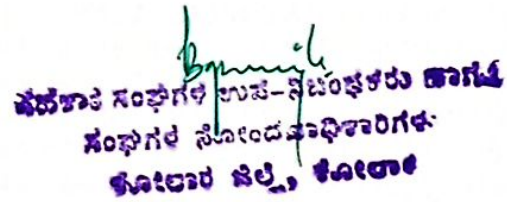 ಸಹಕಾರ ಸಂಘಗಳ ಉಪ-ನಿಬಂಧಕರು ಹಾಗೂ
ಸಂಘಗಳ ನೋಂದಣಾಧಿಕಾರಿಗಳು
ಕೋಲಾರ ಜಿಲ್ಲೆ, ಕೋಲಾರ